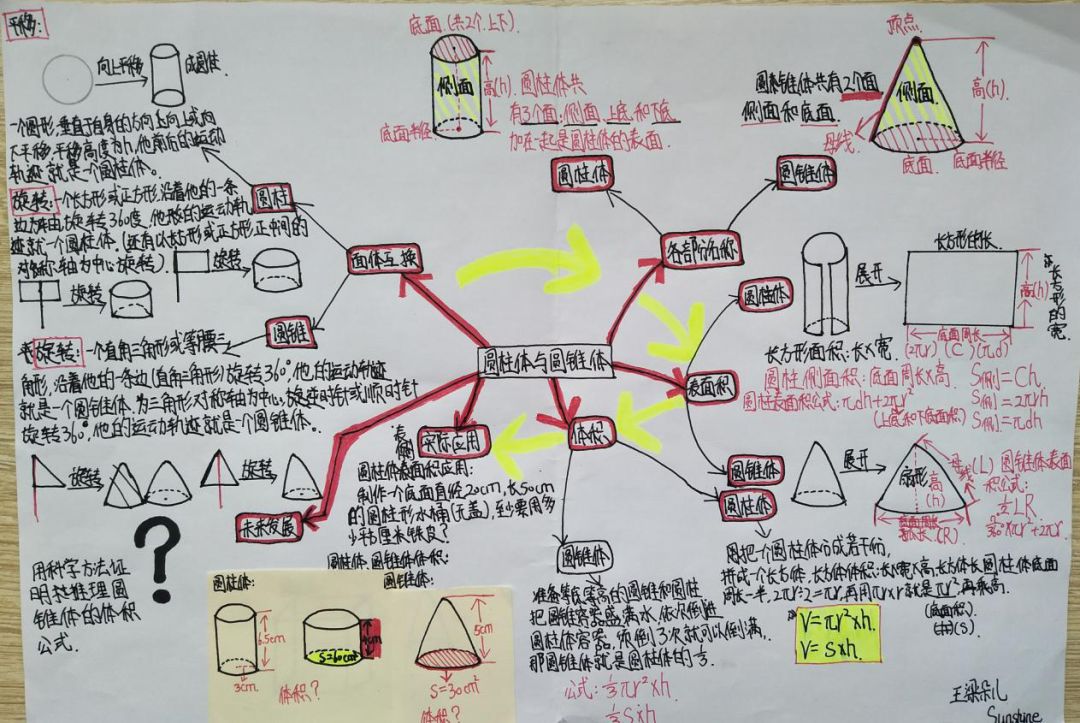 平移:
向上平移
成圆柱.
一个圆形,垂直于自身的方向去向上或向
下平移,平移高度为h,他前后的运动
轨迹就是一个圆柱体。
旋转:一个长方形或正方形,沿着他的一条
边为轴,由旋转360度,他形的运动轨
迹就一个圆柱体.(还有以长方形或正方形正中间的
对称轴为中心旋转).
旋转
旋转
圆柱
面体互换
圆锥
旋转:一个直角三角形或等腰三
角形,沿着他的一条边(直角三角形)旋转360°,他的运动轨迹
就是一个圆锥体.为三角形对称轴为中心,旋逆时针或顺时针
旋转360°,他的运动轨迹就是一个圆锥体。
旋转
旋转
用科学方法证
圆
锥体的体积
公式.
?
未来发展
底面.(共2个,上下)
侧面
高(h).
底面半径
圆柱体共
有3个面:侧面,上底和下底
加在一起是圆柱体的表面.
圆锥体共有2个面
侧面和底面.
顶点
侧面
高(h)
母线
底面
底面半径
圆柱体
圆锥体
各部份名称
圆柱体与圆锥体
圆柱体
表面积
圆锥体
展开
长方形的长
高(h)
长方形的宽
底面周长
(2πr)(C)(πd)
长方形面积:长×宽
圆柱侧面积:底面周长×高.
圆柱表面积公式:πdh+2πr²
(上底和下底面积)
S侧=Ch.
S侧=2πrh
S侧=πdh
展开
扇形
高
(h)
母线(L)
(R)
圆锥体表面
积公式:
½LR
体积
圆柱体
圆锥体
实际应用
圆柱体表面积应用:
制作一个底面直径20cm,长50cm
的圆柱形水桶(无盖),至少要用多
少平方厘米铁皮?
圆柱体,圆锥体体积:
圆柱体:
圆锥体:
6.5cm
3cm
4cm
5cm
S=30cm²
体积?
体积?
准备等底等高的圆锥和圆柱
把圆锥容器盛满水,依次倒进
圆柱体容器,须倒3次就可以倒满.
那圆锥体就是圆柱体的⅓
公式:⅓πr²×h
⅓S×h
把一个圆柱体分成若干份,
拼成一个长方体,长方体体积:长×宽×高,长方体长圆柱体底面
周长一半,2πr÷2=πr,再用πr×r就是πr²,再乘高
(底面积).
(S).
V=πr²×h.
V=S×h.
王梁朵儿
Sunshine